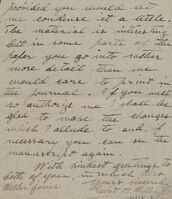 provided you would let
me condense it a little.
The material is interesting
but in some parts of the
paper you go into rather
more detail than we
would care to print in
the journal. If you will
so authorize me I shall be
glad to make the changes
which I allude to and, if
necessary you can see the
manuscript again.
With kindest greetings to
both of you, in which Mrs
Miller joins
Yours sincerely